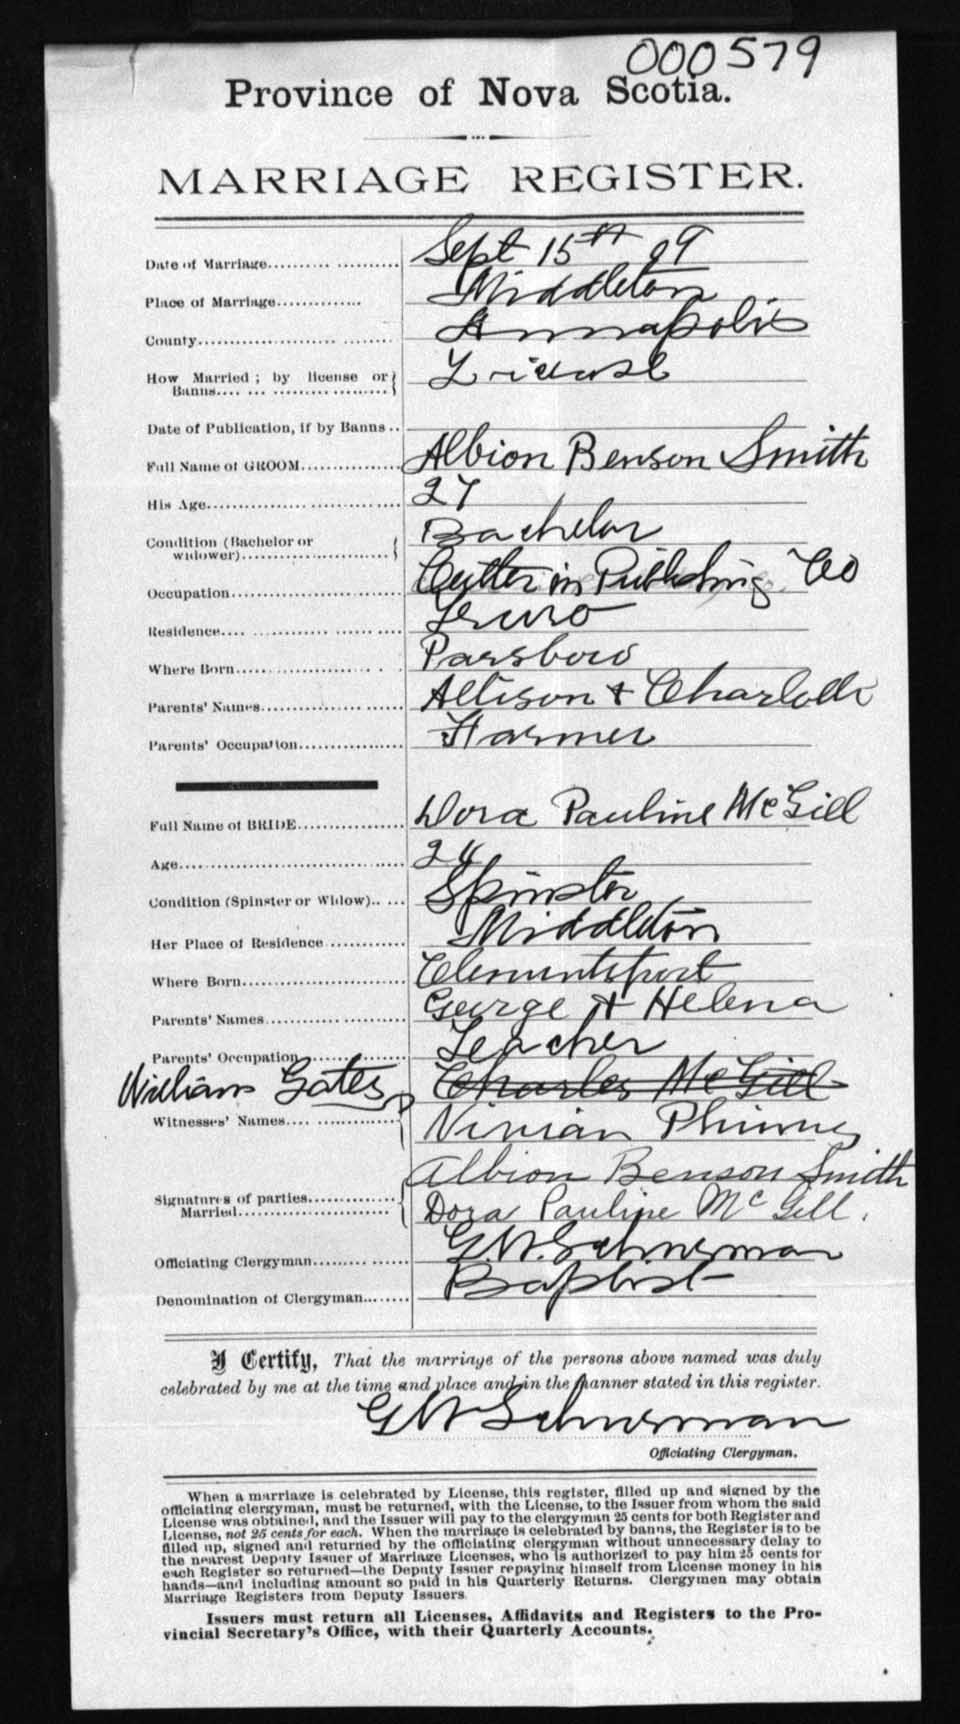 000579
Province of Nova Scotia.
MARRIAGE REGISTER.
Date of Marriage.................... Sept 15th 09
Place of Marriage.............. Middleton
County............................ Annapolis
How Married ; by license or License
Banns.........................
Date of Publication, if by Banns..
Full Name of GROOM................ Albion Benson Smith
His Age.............................. 27
Condition (Bachelor or Bachelor
widower)......................
Occupation.......................... in Publishing Co
Residence........................... Truro
Where Born....................... Parsboro
Parents' Names.................... Allison & Charlotte
Parents' Occupation................ Farmer
Full Name of BRIDE................ Dora Pauline McGill
Age.................................. 24
Condition (Spinster or Widow)..... Spinster
Her Place of Residence............ Middleton
Where Born....................... Clementsport
Parents' Names.................... George & Helena
Parents' Occupation............... Teacher
William Gates Charles McGill
Witnesses' Names.................. Vivian Phinney
Albion Benson Smith
Signatures of parties.............
Married....................... Dora Pauline McGill.
Officiating Clergyman............. G.W. Schurman
Denomination of Clergyman........ Baptist
I Certify, That the marriage of the persons above named was duly
celebrated by me at the time and place and in the manner stated in this register.
G W Schurman
Officiating Clergyman.
When a marriage is celebrated by License, this register, filled up and signed by the
officiating clergyman, must be returned, with the License, to the Issuer from whom the said
License was obtained, and the Issuer will pay to the clergyman 25 cents for both Register and
License, not 25 cents for each. When the marriage is celebrated by banns, the Register is to be
filled up, signed and returned by the officiating clergyman without unnecessary delay to
the nearest Deputy Issuer of Marriage Licenses, who is authorized to pay him 25 cents for
each Register so returned—the Deputy Issuer repaying himself from License money in his
hands—and including amount so paid in his Quarterly Returns. Clergymen may obtain
Marriage Registers from Deputy Issuers
Issuers must return all Licenses, Affidavits and Registers to the Pro-
vincial Secretary's Office, with their Quarterly Accounts.